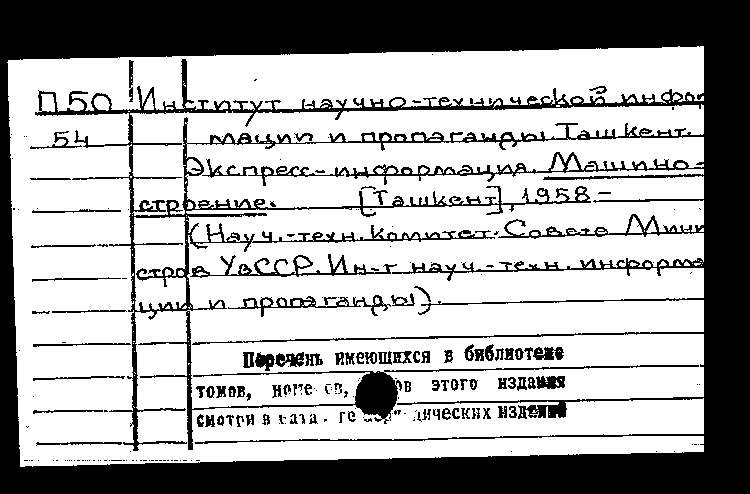 П50 Институт научно-технической инфор
54 мации и пропаганды. Ташкент.
Экспресс-информация. Машино-
строение. [Ташкент], 1958-
(Науч.-техн. комитет Совета Мини
стров УзССР. Ин-т науч.-техн. информа
ции и пропаганды).
Перечень имеющихся в библиотеке
томов, этого издания
смотри в изданий